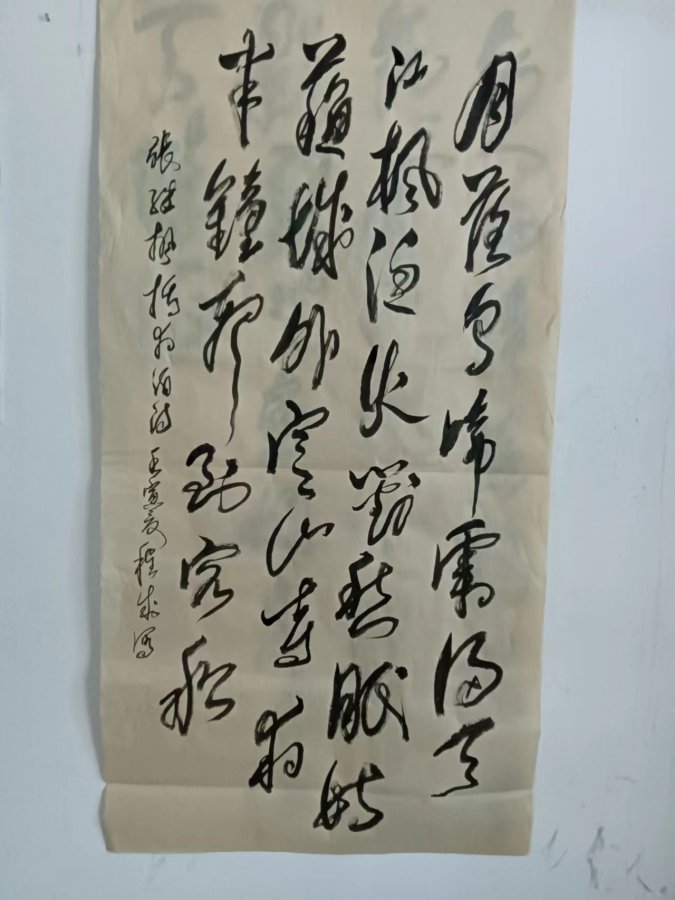 月落烏啼霜滿天
江楓漁火對愁眠姑
蘇城外寒山寺夜
半鐘聲到客船
張継楓橋夜泊詩 壬寅夏程成寫